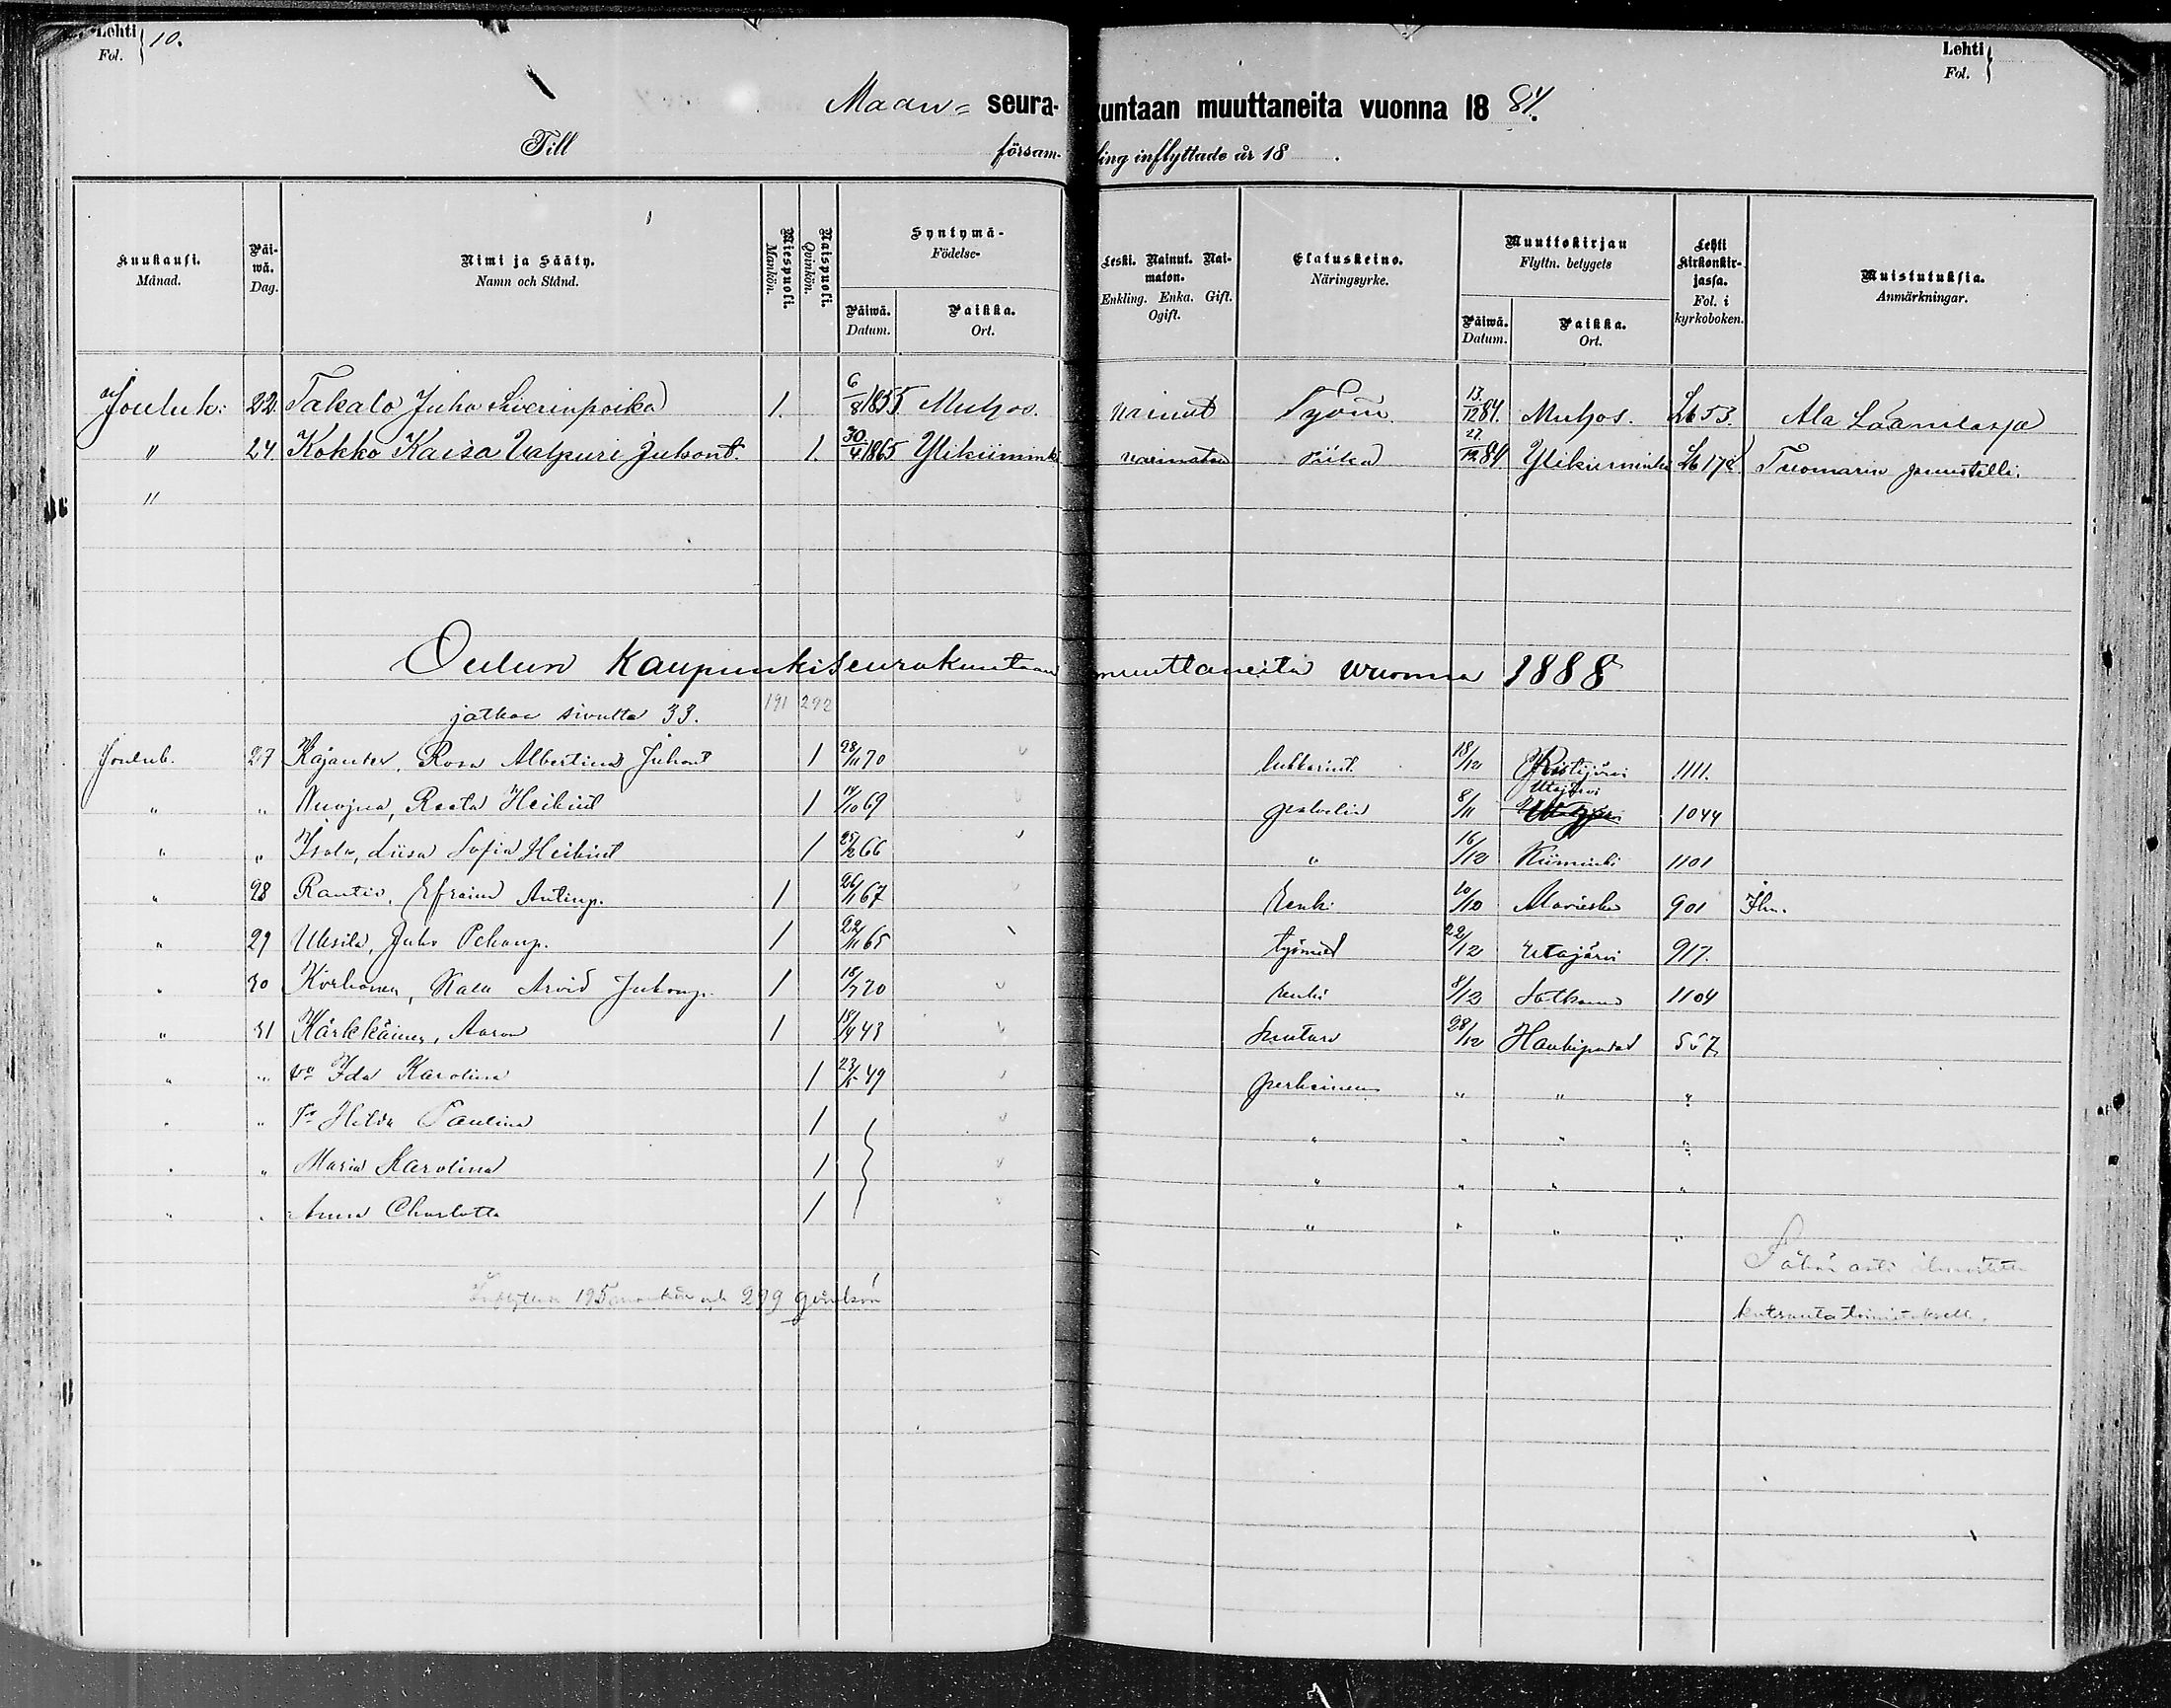 Lehti } 10.
Fol.
Lehti }
Fol.
Maan= seurakuntaan muuttaneita vuonna 1884.
Till församling inflyttade år 18 .
Kuukausi. Månad. | Päiwä. Dag. | Nimi ja Sääty. Namn och Stånd. | Miespuoli. Mankön. | Naispuoli. Qvinkön. | Syntymä- Födelse- Päiwä. Datum. Paikka. Ort. | Leski. Nainut. Naimaton. Enkling. Enka. Gift. Ogift. | Elatuskeino. Näringsyrke. | Muuttokirjan Flyttn. betygets Päiwä. Datum. Paikka. Ort. | Lehti kirkonkirjassa. Fol. i kyrkoboken. | Muistutuksia. Anmärkningar.
Jouluk: 22. Takalo Juho Siverinpoika 1. 6/8 1855 Muhos. nainut Työm. 13/12 84. Muhos. Lb 53. Ala Laanilasja
" 24 Kokko Kaisa Valpuri Juhont. 1. 30/4 1865 Ylikiiminki naimaton Piika 27/12 84 Ylikiiminki Lb 178 Tuomarin
"
Oulun Kaupunkiseurakuntaan muuttaneita vuonna 1888
jatkoa sivulta 33. 191 292
Jouluk. 27 Kajanter, Rosa Albertina Juhont 1 28/11 70 lukkarint. 18/12 Ristijärvi 1111.
" " Nuojua, Reeta Heikint 1 14/10 69 palvelia 8/11 Utajärvi 1044
" " Isola, Liisa Sofia Heikint 1 25/2 66 " 16/12 Kiiminki 1101
" 28 Rantio, Efraim Antinp. 1 26/11 67 Renki 10/12 Alavieska 901
" 29 Uksila, Juho Pekanp. 1 22/11 65 työmies 22/12 Utajärvi 917.
" 30 Korhonen, Kalu Arvid Juhonp. 1 18/7 70 renki 8/12 Sotkamo 1104
" 31 Kärkkäinen, Aaron 1 18/9 43 Suutari 28/12 Haukipudas 557
" " vo Ida Karolina 1 23/5 49 perheineen " " "
" " Tr Hilda Paulina 1 " " " "
" " Maria Karolina 1 " " " "
" " Anna Charlotta 1 " " " "
Inflyttade 195 mankön och 299 qvinkön